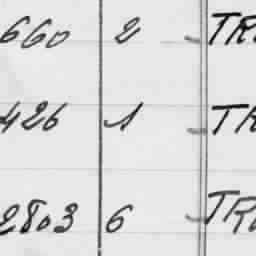 660 2 TR
426 1 TR
2803 6 TR